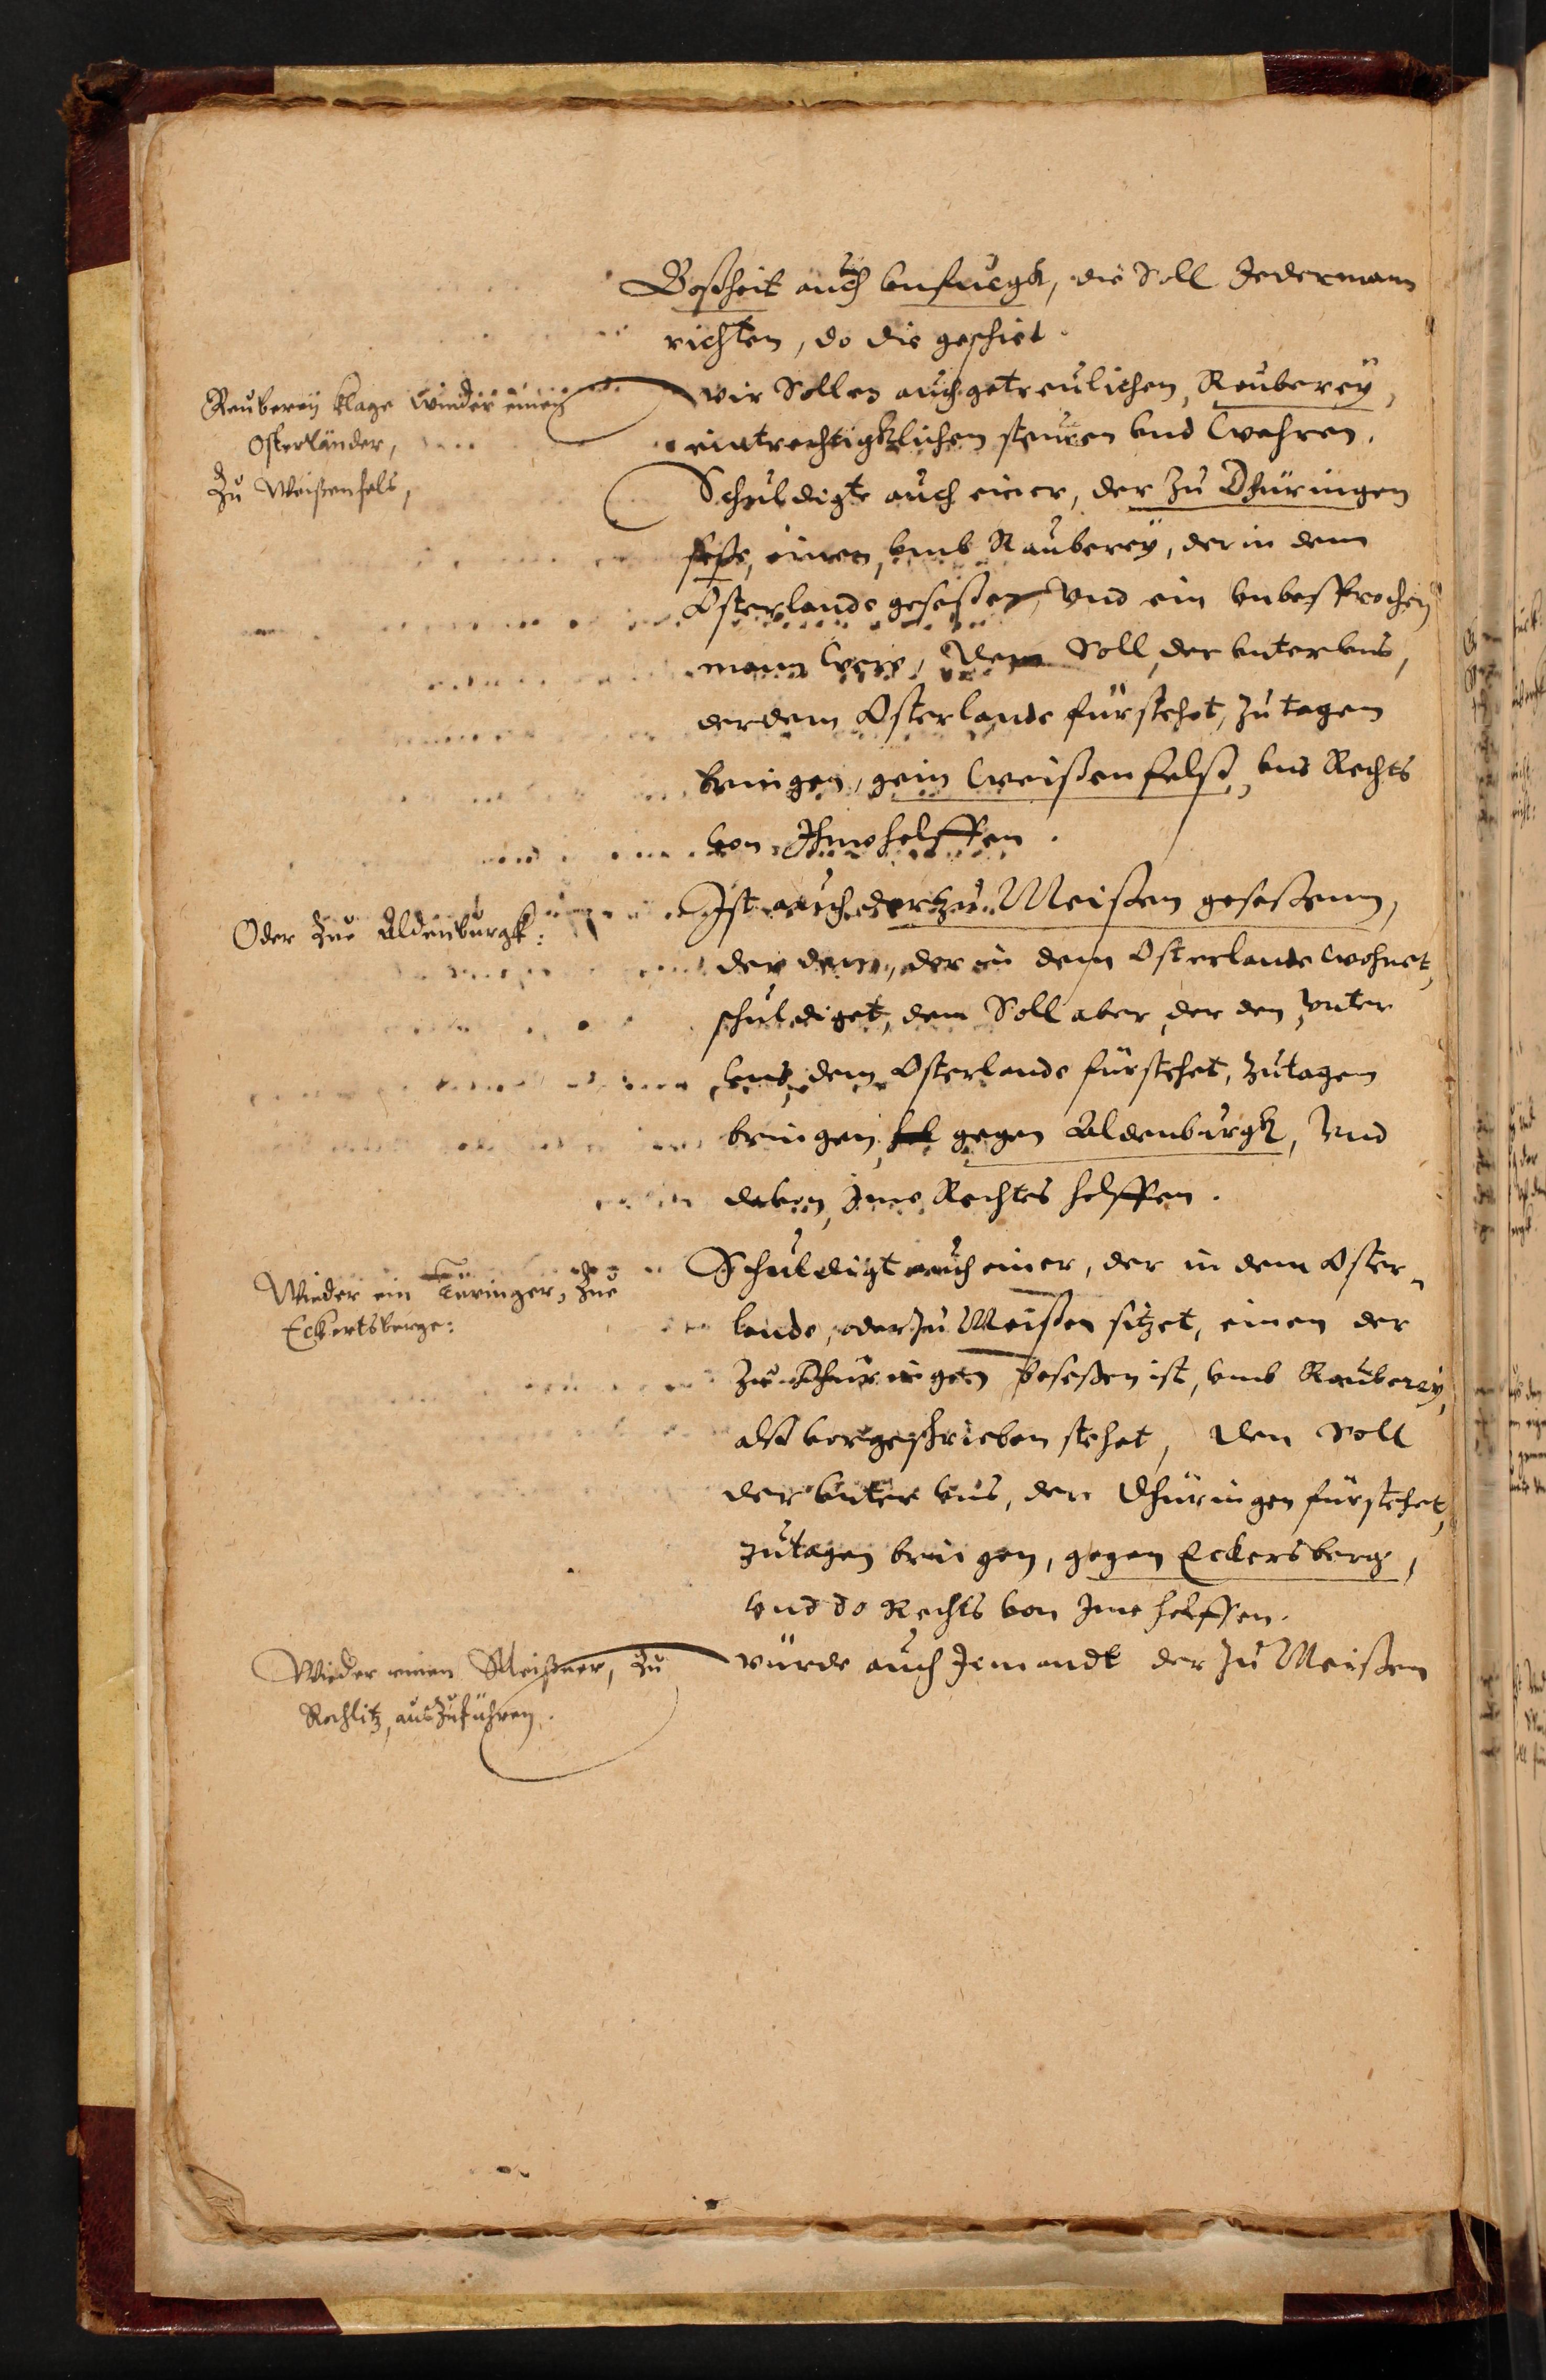 Boßheit auch vnfuegk, die Soll Jedermann
richten, do die geschiet.
Reuberey klage wieder einen
Osterländer,
Zu Weißenfels,
wir Sollen auch getreulichen, Reuberey,
eintrechtigklichen steuren vnd wehren.
Schuldigte auch einer, der Zu Dhüringen
seße, einen, vmb Rauberey, der in dem
Osterlande geseßen, Vnd ein vnbesprochen
mann were, Den Soll, der vnter vns,
der dem Osterlande fürstehet, Zu tagen
bringen, gein Weißenfelß, vns Rechts
von Ihme helffen.
Oder Zue Aldenburgk:
Ist auch der zu Meißen geseßenn,
der den, der in dem Osterlande wohnet,
schuldiget, dem Soll aber, der den Vnter
vns, dem Osterlande fürstehet, Zutagen
bringen, gegen Aldenburgk, Vnd
davon, Ime Rechtes helffen.
Wieder ein Türinger, Zue
Eckertsberge:
Schuldigt auch einer, der in dem Oster-
lande, oder Zu Meißen sitzet, einen der
Zu Dhüringen beseßen ist, vmb Rauberey,
alß vorgeschrieben stehet, Den Soll
der vnter vns, der Dhüringen fürstehet,
Zutagen bringen, gegen Eckersberg,
vnd do Rechts von Ime helffen.
Wieder einen Meißner, Zu
Rochlitz, auszuführen.
würde auch Jemandt der Zu Meißen